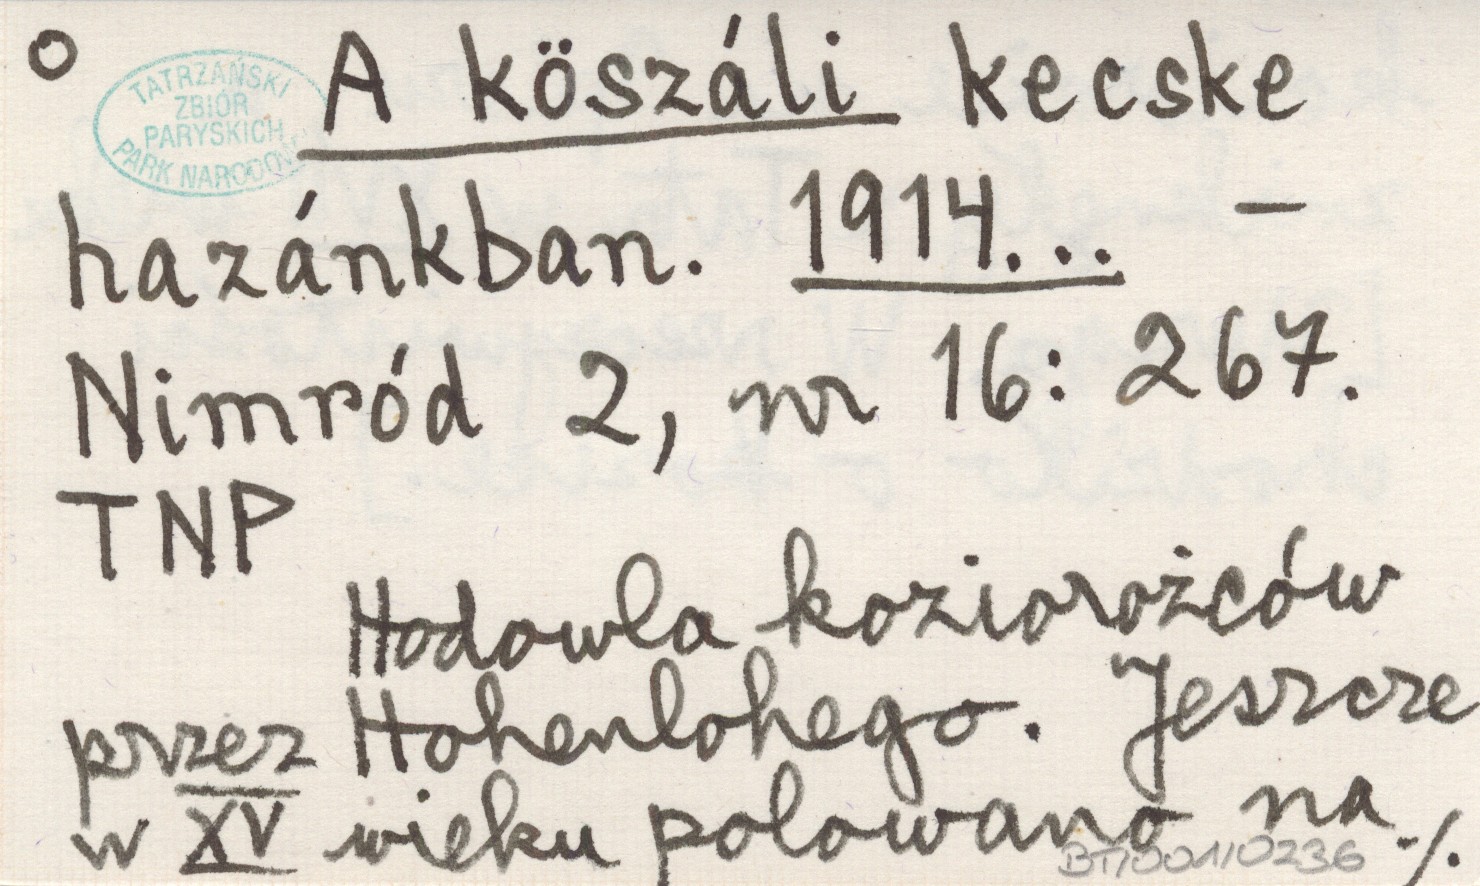 A köszáli kecske
TATRZAŃSKI
ZBIÓR
PARYSKICH
PARK NARODOWY
hazánkban. 1914... –
Nimród 2, nr 16: 267.
TNP
Hodowla koziorożców
przez Hohenlohego. Jeszcze
w XV wieku polowano na ./.
BT/001/0236